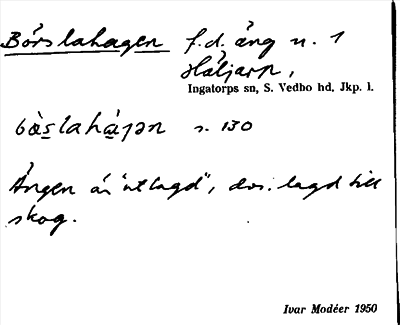 Börslahagen f.d. äng n. 1
Håljarp,
Ingatorps sn, S. Vedbo hd, Jkp. l.
bà̀slahàgən s. 130
Ängen är "utlagd", dvs. lagd till
skog.
Ivar Modéer 1950